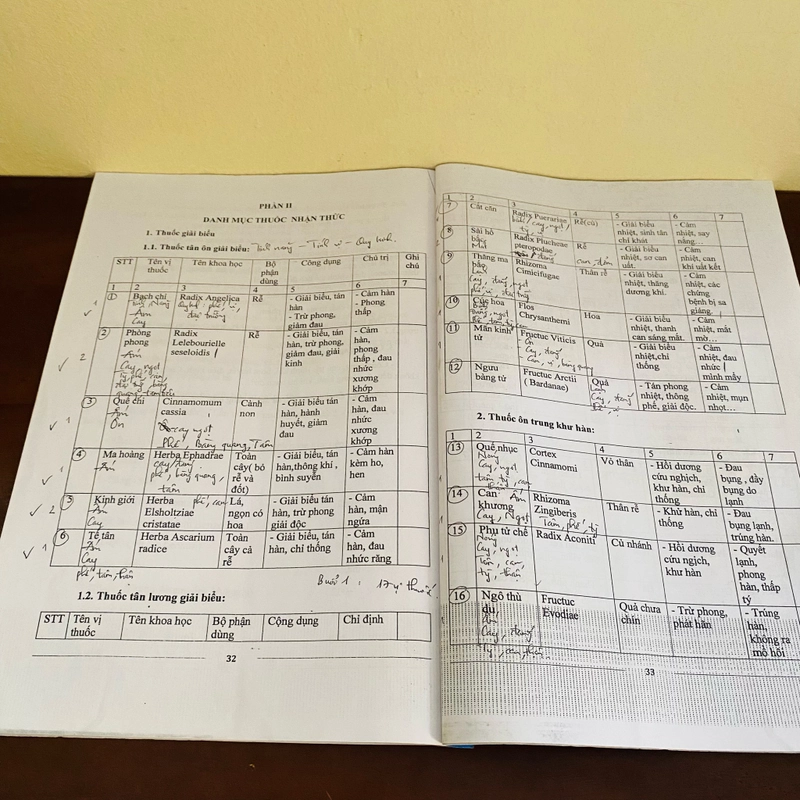 PHẦN II
DANH MỤC THUỐC NHẬN THỨC
1. Thuốc giải biểu
1.1. Thuốc tân ôn giải biểu:
STT Tên vị thuốc Tên khoa học Bộ phận dùng Công dụng Chủ trị Ghi chú
1 2 3 4 5 6 7
1 Bạch chỉ Radix Angelica Rễ - Giải biểu, tán hàn - Trừ phong, giảm đau - Cảm hàn - Phong thấp
Ấm
Cay
2 Phòng phong Radix Lelebourielle seseloidis Rễ - Giải biểu, tán hàn, trừ phong, giảm đau, giải kinh - Cảm hàn, phong thấp, đau nhức xương khớp
Ấm
Cay, ngọt
3 Quế chi Cinnamomum cassia Cành non - Giải biểu tán hàn, hành huyết, giảm đau - Cảm hàn, đau nhức xương khớp
Ấm
Ôn
cay ngọt
Phế, Bàng quang, Tâm
4 Ma hoàng Herba Ephadrae Toàn cây( bỏ rễ và đốt) - Giải biểu, tán hàn,thông khí , bình suyễn - Cảm hàn kèm ho, hen
Ấm
cay, đắng
phế, bàng quang,
tâm
5 Kinh giới Herba Elsholtziae cristatae Lá, ngọn có hoa - Giải biểu tán hàn, trừ phong giải độc - Cảm hàn, mận ngứa
Ấm
Cay
phế, can
6 Tế tân Herba Ascarium radice Toàn cây cả rễ - Giải biểu, tán hàn, chỉ thống - Cảm hàn, đau nhức răng
Ấm
Cay
phế, tâm, thận
Buổi 1: 17 vị thuốc
1.2. Thuốc tân lương giải biểu:
STT Tên vị thuốc Tên khoa học Bộ phận dùng Công dụng Chỉ định
32
1 2 3 4 5 6 7
7 Cát căn Radix Puerariae Rễ(củ) - Giải biểu nhiệt, sinh tân chỉ khát - Cảm nhiệt, say nắng…
8 Sài hồ bắc Radix Plucheae pteropodae Rễ - Giải biểu nhiệt, sơ can uất. - Cảm nhiệt, can khí uất kết
9 Thăng ma bắc Rhizoma Cimicifugae Thân rễ - Giải biểu nhiệt, thăng dương khí. - Cảm nhiệt, các chứng bệnh bị sa giáng.
10 Cúc hoa Flos Chrysanthemi Hoa - Giải biểu nhiệt, thanh can sáng mắt. - Cảm nhiệt, mắt mờ…
11 Mãn kinh tử Fructuc Viticis Quả - Giải biểu nhiệt,chỉ thống - Cảm nhiệt, đau nhức mình mẩy
12 Ngưu bàng tử Fructuc Arctii ( Bardanae) Quả - Tán phong nhiệt, thông phế, giải độc. - Cảm nhiệt, mụn nhọt…
2. Thuốc ôn trung khư hàn:
1 2 3 4 5 6 7
13 Quế nhục Cortex Cinnamomi Vỏ thân - Hồi dương cứu nghịch, khư hàn, chỉ thống - Đau bụng , đầy bụng do lạnh
Nóng
Cay, ngọt
14 Can khương Rhizoma Zingiberis Thân rễ - Khử hàn, chỉ thống - Đau bụng lạnh, trúng hàn.
Ấm
Cay, Ngọt
Tâm, phế, tỳ
15 Phụ tử chế Radix Aconiti Củ nhánh - Hồi dương cứu ngịch, khư hàn - Quyết lạnh, phong hàn, thấp tý
Nóng
Cay, ngọt
tâm, can,
tỳ, thận
16 Ngô thù du Fructuc Evodiae Quả chưa chín - Trừ phong, phát hãn - Trúng hàn, không ra mồ hôi
Ấm
Cay, đắng
Tỳ, can, thận
33